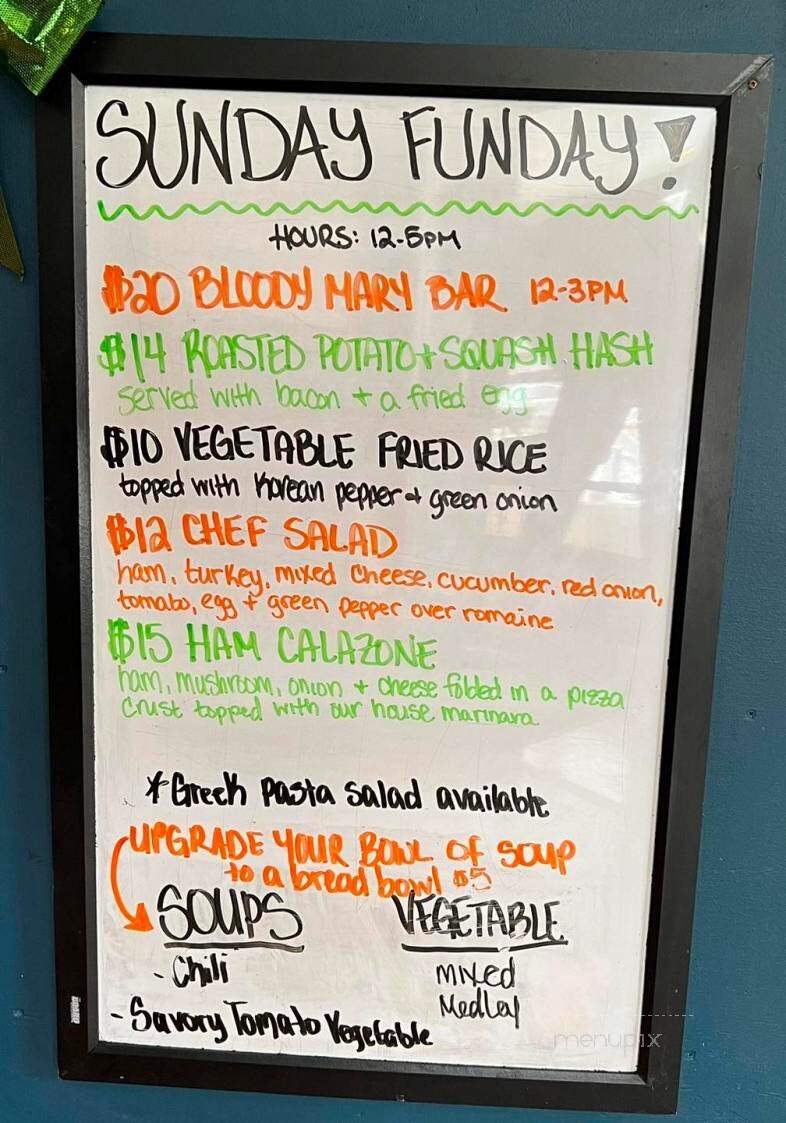 SUNDAY FUNDAY!
HOURS: 12-5PM
$20 BLOODY MARY BAR 12-3PM
$14 ROASTED POTATO + SQUASH HASH
served with bacon + a fried egg
$10 VEGETABLE FRIED RICE
topped with Korean pepper + green onion
$12 CHEF SALAD
ham, turkey, mixed cheese, cucumber, red onion,
tomato, egg + green pepper over romaine
$15 HAM CALAZONE
ham, mushroom, onion + cheese folded in a pizza
crust topped with our house marinara
*Greek pasta salad available
UPGRADE YOUR BOWL OF SOUP
to a bread bowl $5
SOUPS
- Chili
- Savory Tomato Vegetable
VEGETABLE
Mixed
Medley
menupix